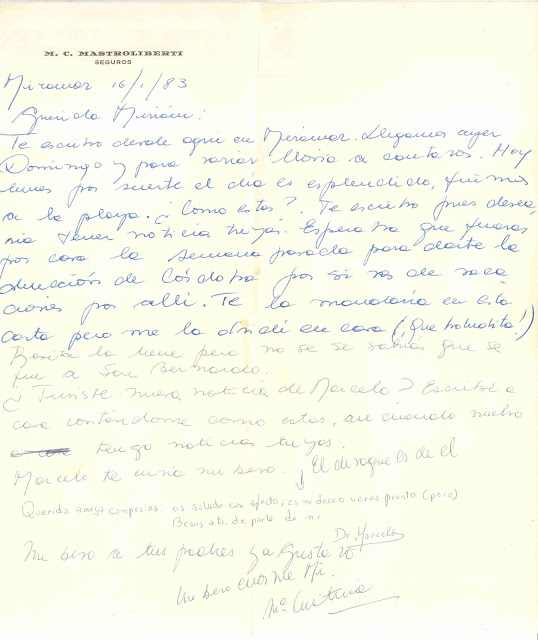 M. C. MASTROLIBERTI
SEGUROS
Miramar 16/1/83
Querida Miriam:
Te escribo desde aquí en Miramar. Llegamos ayer
Domingo y para variar llovía a cantaros. Hoy
lunes por suerte el día es esplendido, fuimos
a la playa. ¿Como estas?. Te escribo pues desea
ría tener noticia tuyas. Esperaba que fueras
por casa la semana pasada para darte la
dirección de Córdoba por si vas de vaca
ciones por alli. Te la mandaría en esta
carta pero me la olvidé en casa (¡Que boludita!)
la tiene pero no se si sabías que se
fue a San Bernardo.
¿Tuviste nueva noticia de Marcelo? Escribí a
casa contándome como estas, asi cuando vuelvo
tengo noticias tuyas.
Marcelo te envia un beso. El dibague es de el.
Querida amiga campesina: os saludo con afecto; es mi deseo veros pronto (poro)
Besos a ti. de parte de mi.
Dr. Marcelo
Un beso a tus padres y a Gustavo
Un beso enorme Mi.
Ma Cristina